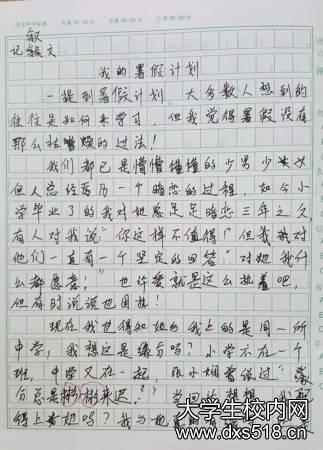 叙
记叙文
我的暑假计划
一提到暑假计划,大多数人想到的
往往是如何来学习,但我觉得暑假没有
那么枯燥的过法!
我们都已是懵懵懂懂的少男少女
但人总经历历一个暗恋的过程,如今小
学毕业了的我对她总是足足暗恋三年之久
有人对我说"你这样不值得!"但我
他们一直有一个坚定的回答:"对她我什
么都愿意,"也许爱就是这么执着吧,
但有时说说也困
现在我也得知她与我上的是同一所
中学,我想这是缘分吗?小学不在一个
班,中学又在一起,张小娴曾说过"缘
分总是姗姗来迟。"
得上
吗?我与她
大学生校内网
www.dxs518.cn